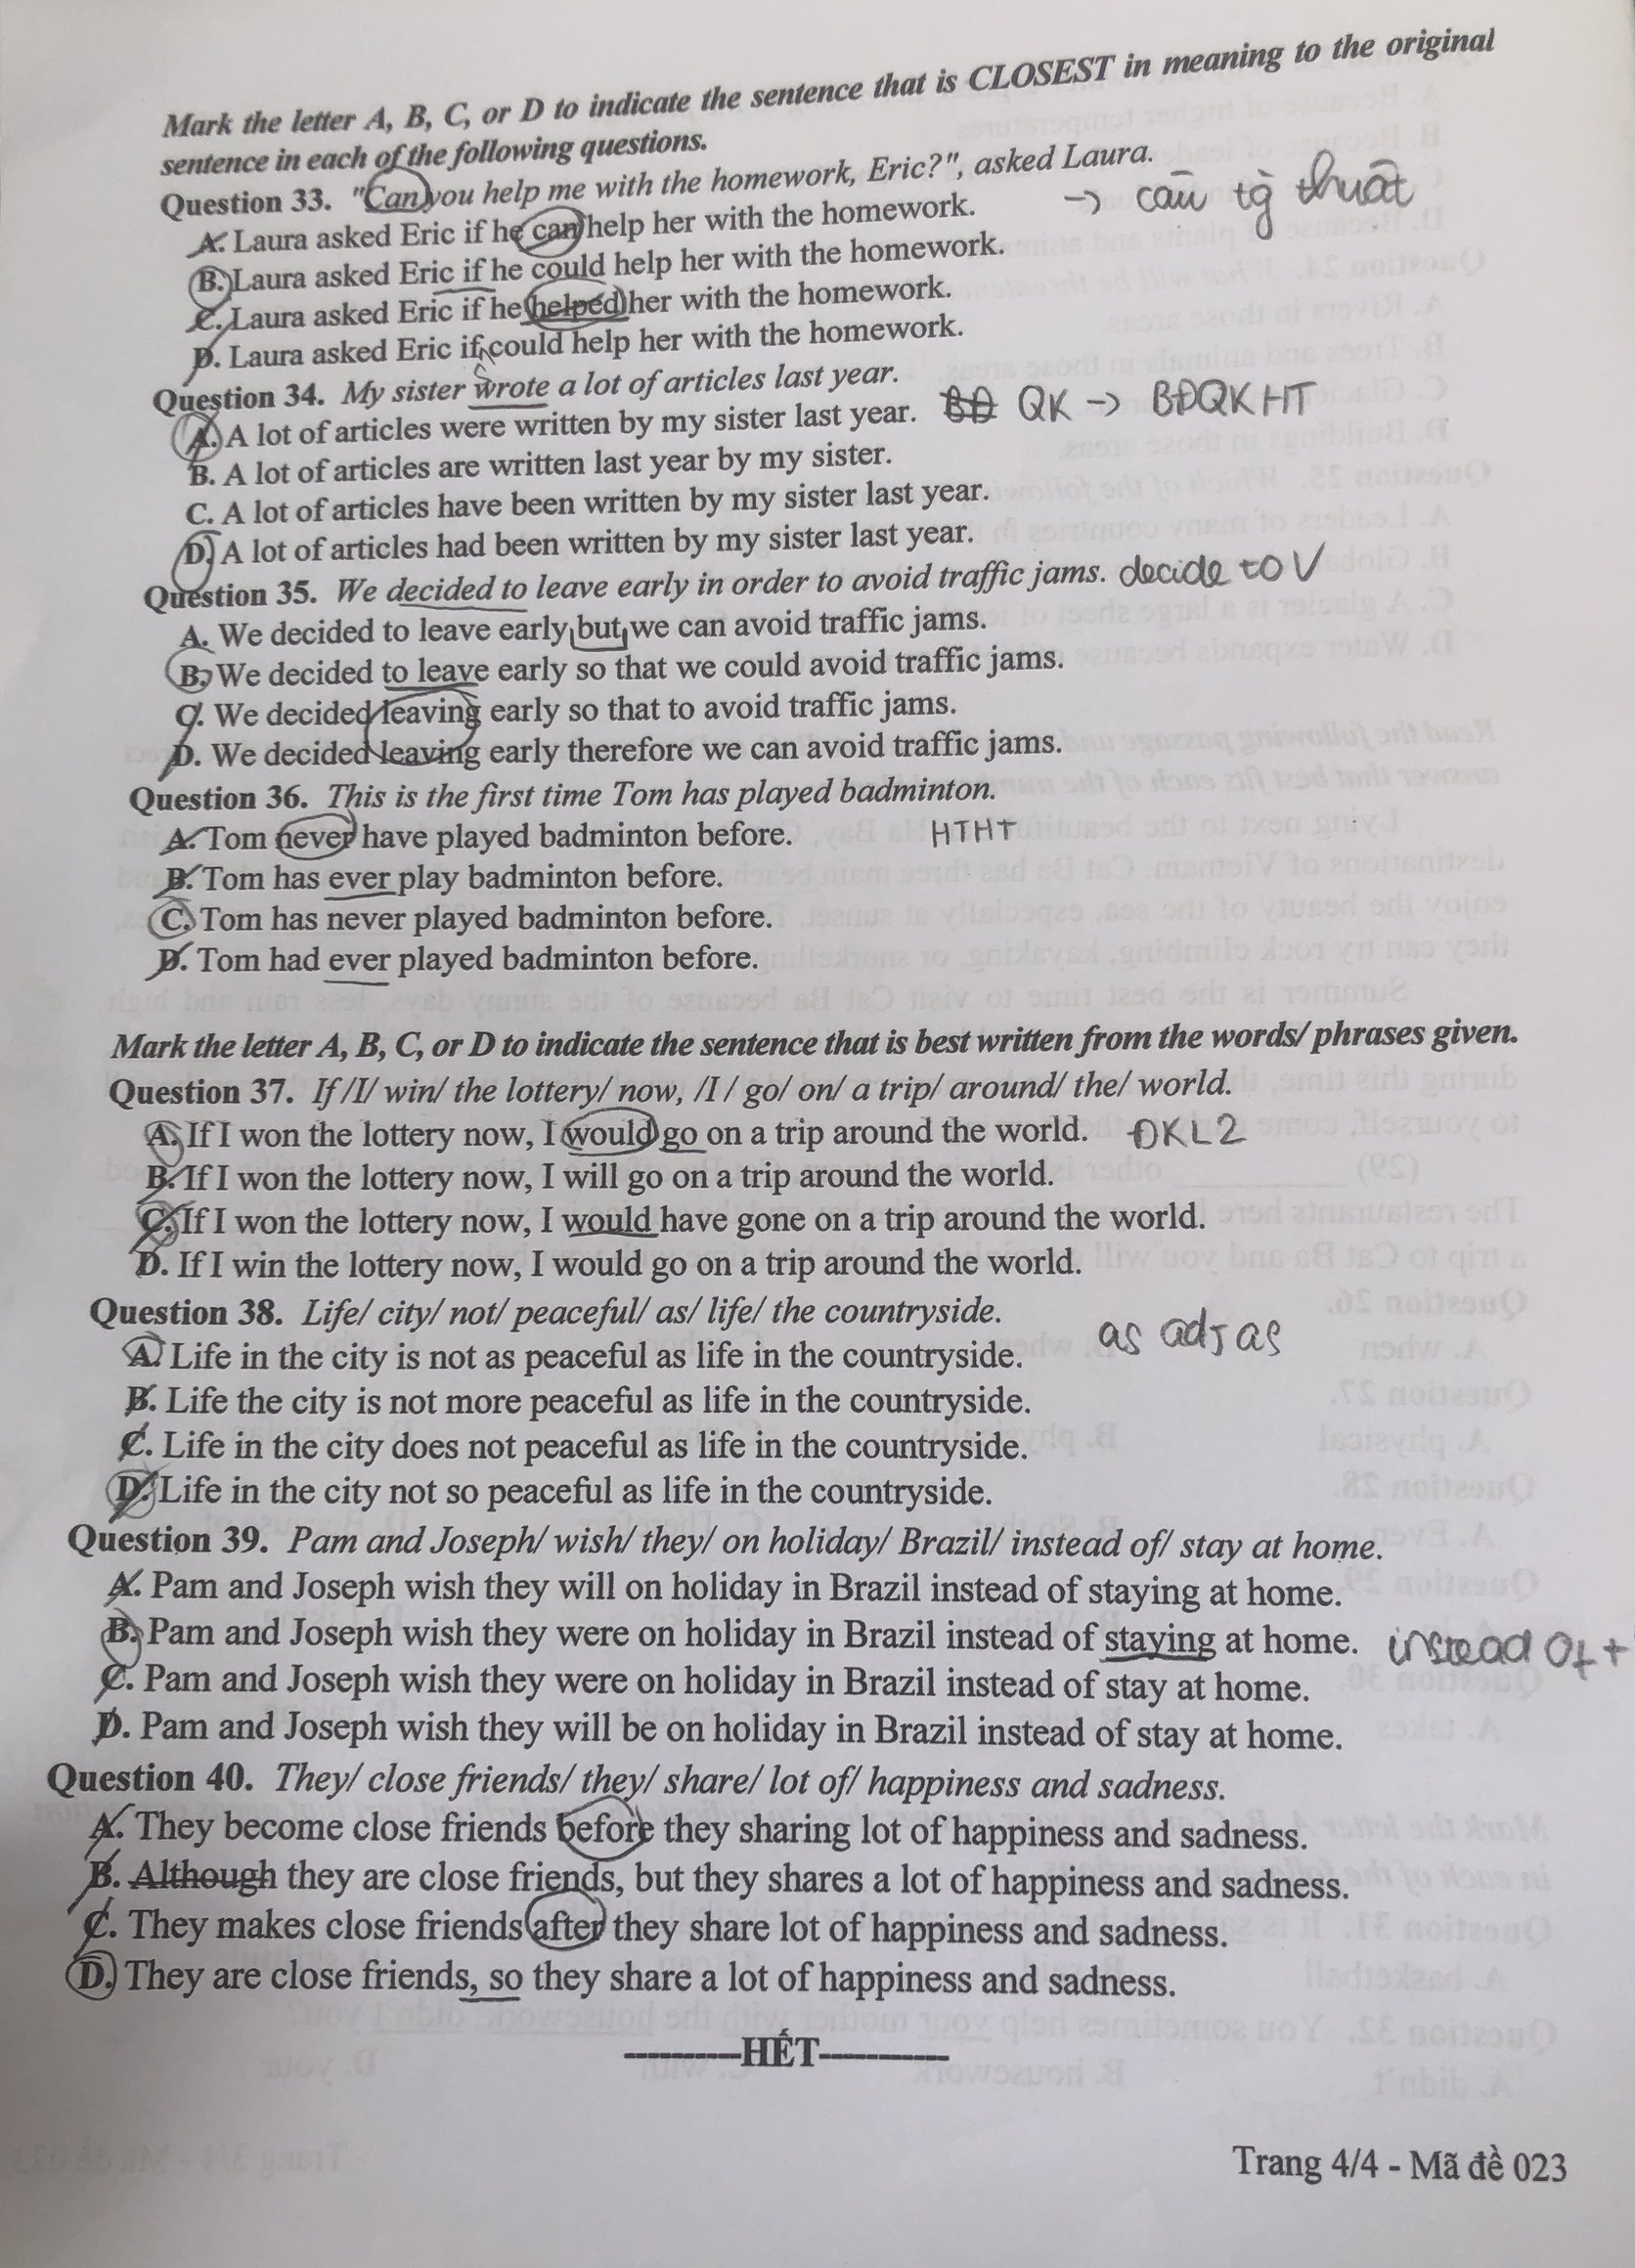 Mark the letter A, B, C, or D to indicate the sentence that is CLOSEST in meaning to the original
sentence in each of the following questions.
Question 33. "Can you help me with the homework, Eric?", asked Laura.
→ câu tg thuật
A. Laura asked Eric if he can help her with the homework.
B. Laura asked Eric if he could help her with the homework.
C. Laura asked Eric if he helped her with the homework.
D. Laura asked Eric if could help her with the homework.
Question 34. My sister wrote a lot of articles last year.
A. A lot of articles were written by my sister last year. BĐ QK → BĐQKHT
B. A lot of articles are written last year by my sister.
C. A lot of articles have been written by my sister last year.
D. A lot of articles had been written by my sister last year.
Question 35. We decided to leave early in order to avoid traffic jams. decide to V
A. We decided to leave early but we can avoid traffic jams.
B. We decided to leave early so that we could avoid traffic jams.
C. We decided leaving early so that to avoid traffic jams.
D. We decided leaving early therefore we can avoid traffic jams.
Question 36. This is the first time Tom has played badminton.
A. Tom never have played badminton before. HTHT
B. Tom has ever play badminton before.
C. Tom has never played badminton before.
D. Tom had ever played badminton before.
Mark the letter A, B, C, or D to indicate the sentence that is best written from the words/ phrases given.
Question 37. If /I/ win/ the lottery/ now, /I / go/ on/ a trip/ around/ the/ world.
A. If I won the lottery now, I would go on a trip around the world. ĐKL2
B. If I won the lottery now, I will go on a trip around the world.
C. If I won the lottery now, I would have gone on a trip around the world.
D. If I win the lottery now, I would go on a trip around the world.
Question 38. Life/ city/ not/ peaceful/ as/ life/ the countryside.
as adj as
A. Life in the city is not as peaceful as life in the countryside.
B. Life the city is not more peaceful as life in the countryside.
C. Life in the city does not peaceful as life in the countryside.
D. Life in the city not so peaceful as life in the countryside.
Question 39. Pam and Joseph/ wish/ they/ on holiday/ Brazil/ instead of/ stay at home.
A. Pam and Joseph wish they will on holiday in Brazil instead of staying at home.
B. Pam and Joseph wish they were on holiday in Brazil instead of staying at home. instead of +
C. Pam and Joseph wish they were on holiday in Brazil instead of stay at home.
D. Pam and Joseph wish they will be on holiday in Brazil instead of stay at home.
Question 40. They/ close friends/ they/ share/ lot of/ happiness and sadness.
A. They become close friends before they sharing lot of happiness and sadness.
B. Although they are close friends, but they shares a lot of happiness and sadness.
C. They makes close friends after they share lot of happiness and sadness.
D. They are close friends, so they share a lot of happiness and sadness.
----------HẾT----------
Trang 4/4 - Mã đề 023